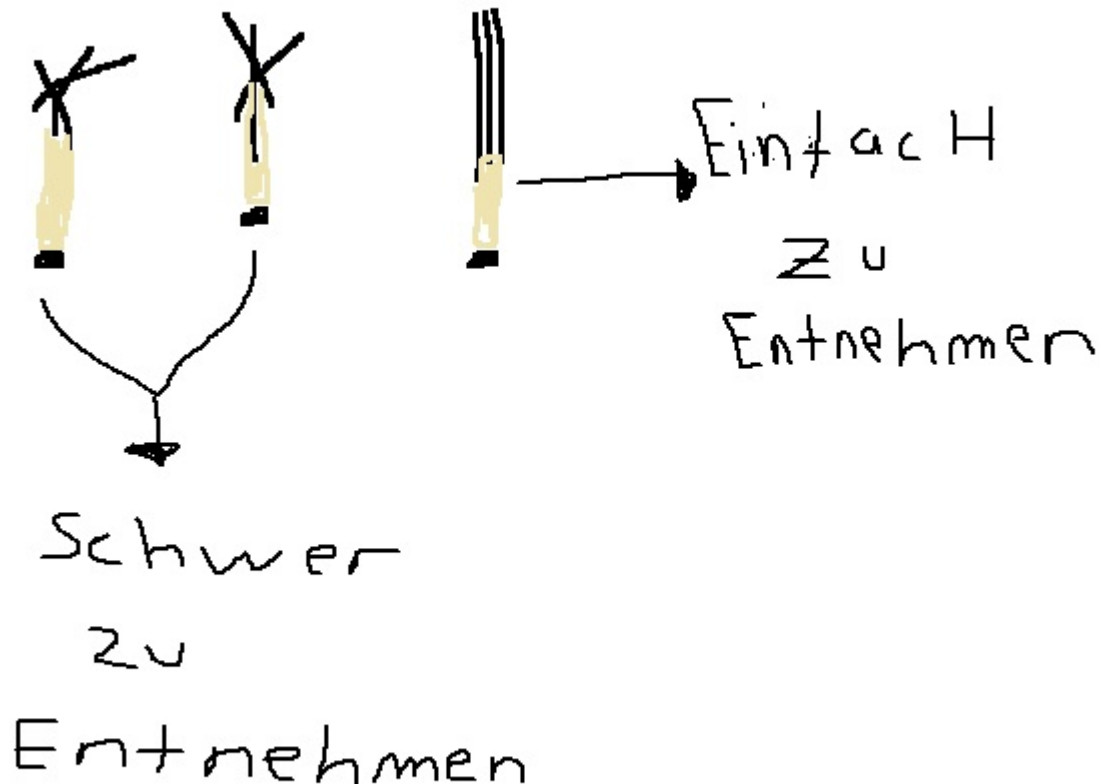 EinfacH
zu
Entnehmen
Schwer
zu
Entnehmen